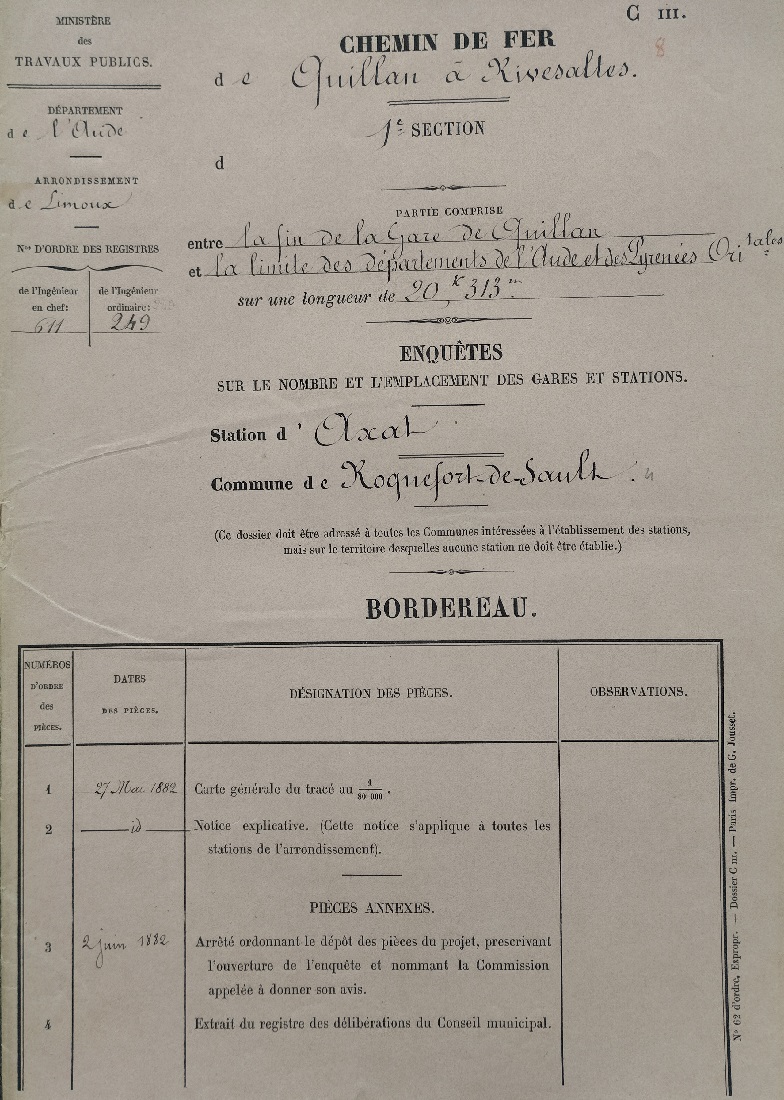 C III.
8
MINISTÈRE
des
TRAVAUX PUBLICS.
DÉPARTEMENT
de l'Aude
ARRONDISSEMENT
de Limoux
Nos D'ORDRE DES REGISTRES
de l'Ingénieur
en chef:
611
de l'Ingénieur
ordinaire:
249
CHEMIN DE FER
de Quillan à Rivesaltes.
1e SECTION
d
PARTIE COMPRISE
entre la fin de la Gare de Quillan
et la limite des départements de l'Aude et des Pyrénées Ori tales
sur une longueur de 20k,313m
ENQUÊTES
SUR LE NOMBRE ET L'EMPLACEMENT DES GARES ET STATIONS.
Station d' Axat
Commune de Roquefort-de-Sault.
(Ce dossier doit être adressé à toutes les Communes intéressées à l'établissement des stations,
mais sur le territoire desquelles aucune station ne doit être établie.)
BORDEREAU.
NUMÉROS
D'ORDRE
des
PIÈCES.
DATES
DES PIÈCES.
DÉSIGNATION DES PIÈCES.
OBSERVATIONS.
1 27 Mai 1882 Carte générale du tracé au 1/80 000.
2 id Notice explicative. (Cette notice s'applique à toutes les
stations de l'arrondissement).
PIÈCES ANNEXES.
3 2 juin 1882 Arrêté ordonnant le dépôt des pièces du projet, prescrivant
l'ouverture de l'enquête et nommant la Commission
appelée à donner son avis.
4 Extrait du registre des délibérations du Conseil municipal.
N° 62 d'ordre, Expropr. — Dossier C III. — Paris Impr. de G. Jousset.